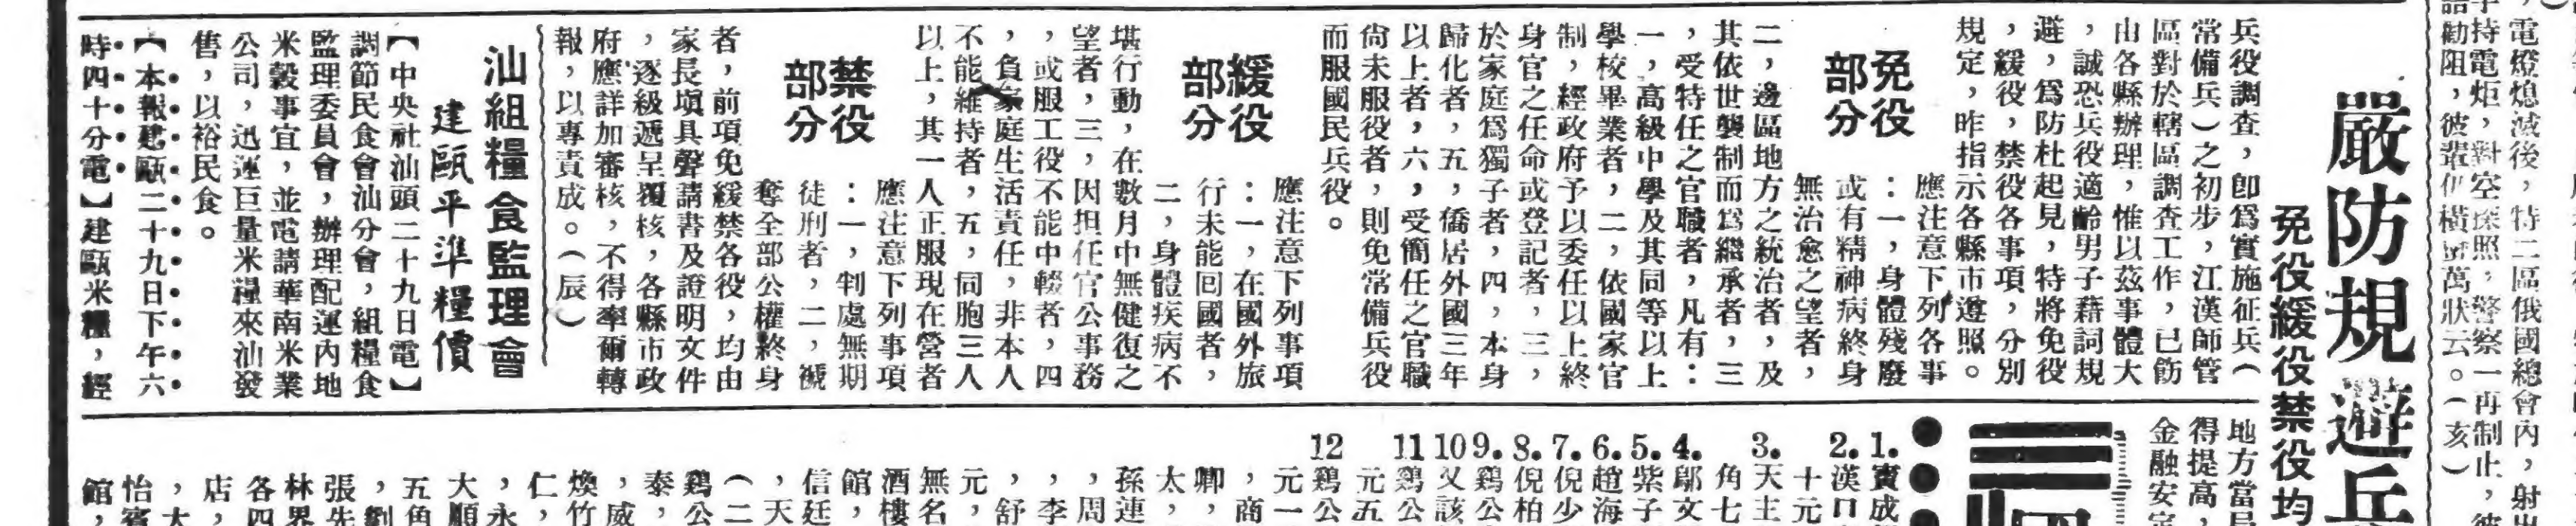 電燈熄滅後，特二區俄國總會內，射出
手持電炬，對空探照，警察一再制止，彼
勸阻，彼輩仍橫萬狀云。（亥）
嚴防規避兵
免役緩役禁役均
兵役調查，卽爲實施征兵（
常備兵）之初步，江漢師管
區對於轄區調查工作，已飭
由各縣辦理，惟以茲事體大
，誠恐兵役適齡男子藉詞規
避，爲防杜起見，特將免役
，緩役，禁役各事項，分別
規定，昨指示各縣市遵照。
免役
部分
應注意下列各事
：一，身體殘廢
或有精神病終身
無治愈之望者，
二，邊區地方之統治者，及
其依世襲制而爲繼承者，三
，受特任之官職者，凡有：
一，高級中學及其同等以上
學校畢業者，二，依國家官
制，經政府予以委任以上終
身官之任命或登記者，三，
於家庭爲獨子者，四，本身
歸化者，五，僑居外國三年
以上者，六，受簡任之官職
尙未服役者，則免常備兵役
而服國民兵役。
緩役
部分
應注意下列事項
：一，在國外旅
行未能回國者，
二，身體疾病不
堪行動，在數月中無健復之
望者，三，因担任官公事務
，或服工役不能中輟者，四
，負家庭生活責任，非本人
不能維持者，五，同胞三人
以上，其一人正服現在營者
禁役
部分
應注意下列事項
：一，判處無期
徒刑者，二，褫
奪全部公權終身
者，前項免緩禁各役，均由
家長塡具聲請書及證明文件
，逐級遞呈覆核，各縣市政
府應詳加審核，不得率爾轉
報，以專責成。（辰）
汕組糧食監理會
建甌平準糧價
【中央社汕頭二十九日電】
調節民食會汕分會，組糧食
監理委員會，辦理配運內地
米穀事宜，並電請華南米業
公司，迅運巨量米糧來汕發
售，以裕民食。
【本報建甌二十九日下午六
時四十分電】建甌米糧，經
地方當局
得提高，
金融安定
1.寶成
2.漢口
十元
3.天主
角七
4.鄔文
5.紫子
6.趙海
7.倪少
8.倪柏
9.鷄公
10又該
11鷄公
元五
12鷄公
元一
，商
卿，
太，
孫連
，周
，李
，舒
元，
無名
酒樓
館，
信廷
，天
（二
鷄公
泰，
，威
煥竹
仁，
，永
大順
五角
，劉
張先
林界
各四
店，
，大
怡賓
館，